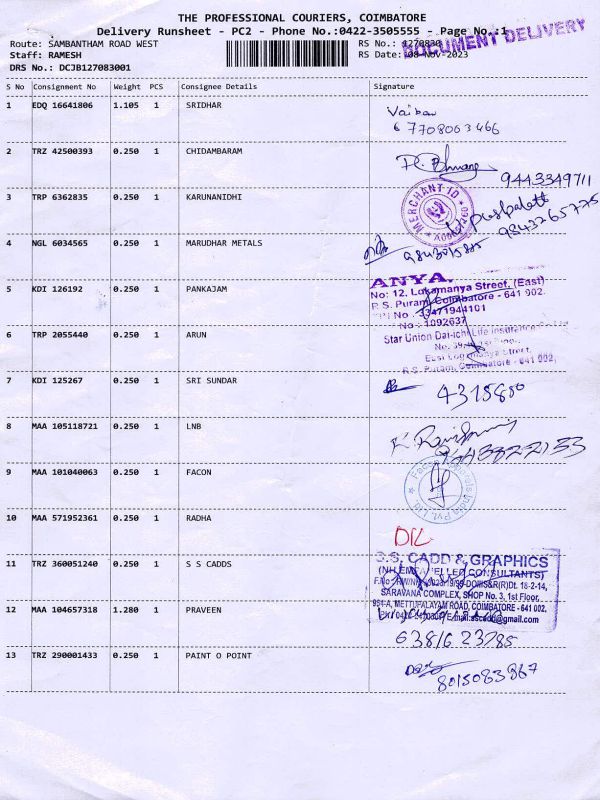 THE PROFESSIONAL COURIERS, COIMBATORE
Delivery Runsheet - PC2 - Phone No.:0422-3505555 - Page No.:1
DOCUMENT DELIVERY
Route: SAMBANTHAM ROAD WEST RS No.:
Staff: RAMESH RS Date: 08-Nov-2023
DRS No.: DCJB127083001
S No Consignment No Weight PCS Consignee Details Signature
1 EDQ 16641806 1.105 1 SRIDHAR
7708063466
2 TRZ 42500393 0.250 1 CHIDAMBARAM
9443349711
3 TRP 6362835 0.250 1 KARUNANIDHI
MERCHANT ID
9843265775
4 NGL 6034565 0.250 1 MARUDHAR METALS
5 KDI 126192 0.250 1 PANKAJAM
ANYA.
No: 12, Lokamanya Street, (East)
R S. Puram, Coimbatore - 641 002.
6 TRP 2055440 0.250 1 ARUN
Star Union Dai-ichi Life Insurance
R.S. Puram, Coimbatore - 641 002
7 KDI 125267 0.250 1 SRI SUNDAR
4315850
8 MAA 105118721 0.250 1 LNB
9 MAA 101040063 0.250 1 FACON
10 MAA 571952361 0.250 1 RADHA
D1L
11 TRZ 360051240 0.250 1 S S CADDS
S.S. CADD & GRAPHICS
SARAVANA COMPLEX, SHOP No. 3, 1st Floor,
METTUPALAYAM ROAD, COIMBATORE - 641 002.
12 MAA 104657318 1.280 1 PRAVEEN
63816 23785
13 TRZ 290001433 0.250 1 PAINT O POINT
8015083967